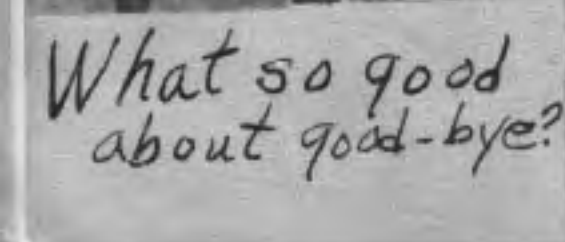 What so good
about good-bye?